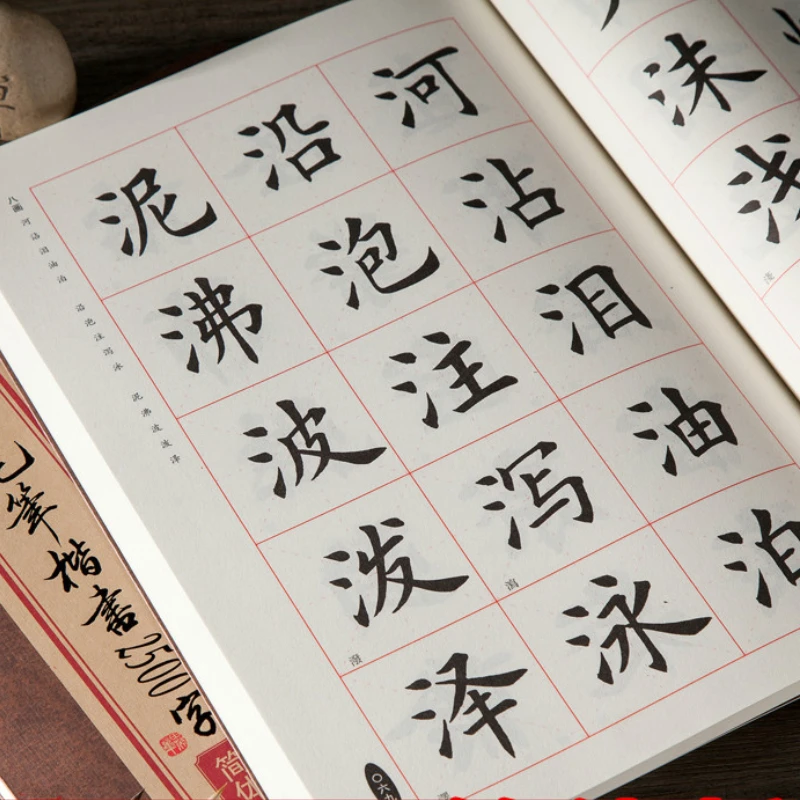 沫
浅
河
沾
泪
油
泊
沿
泡
注
泻
瀉
泳
泥
沸
波
泼
潑
泽
河沾泪油泊 沿泡注泻泳 泥沸波泼泽
〇六九
筆楷書2500字
简体